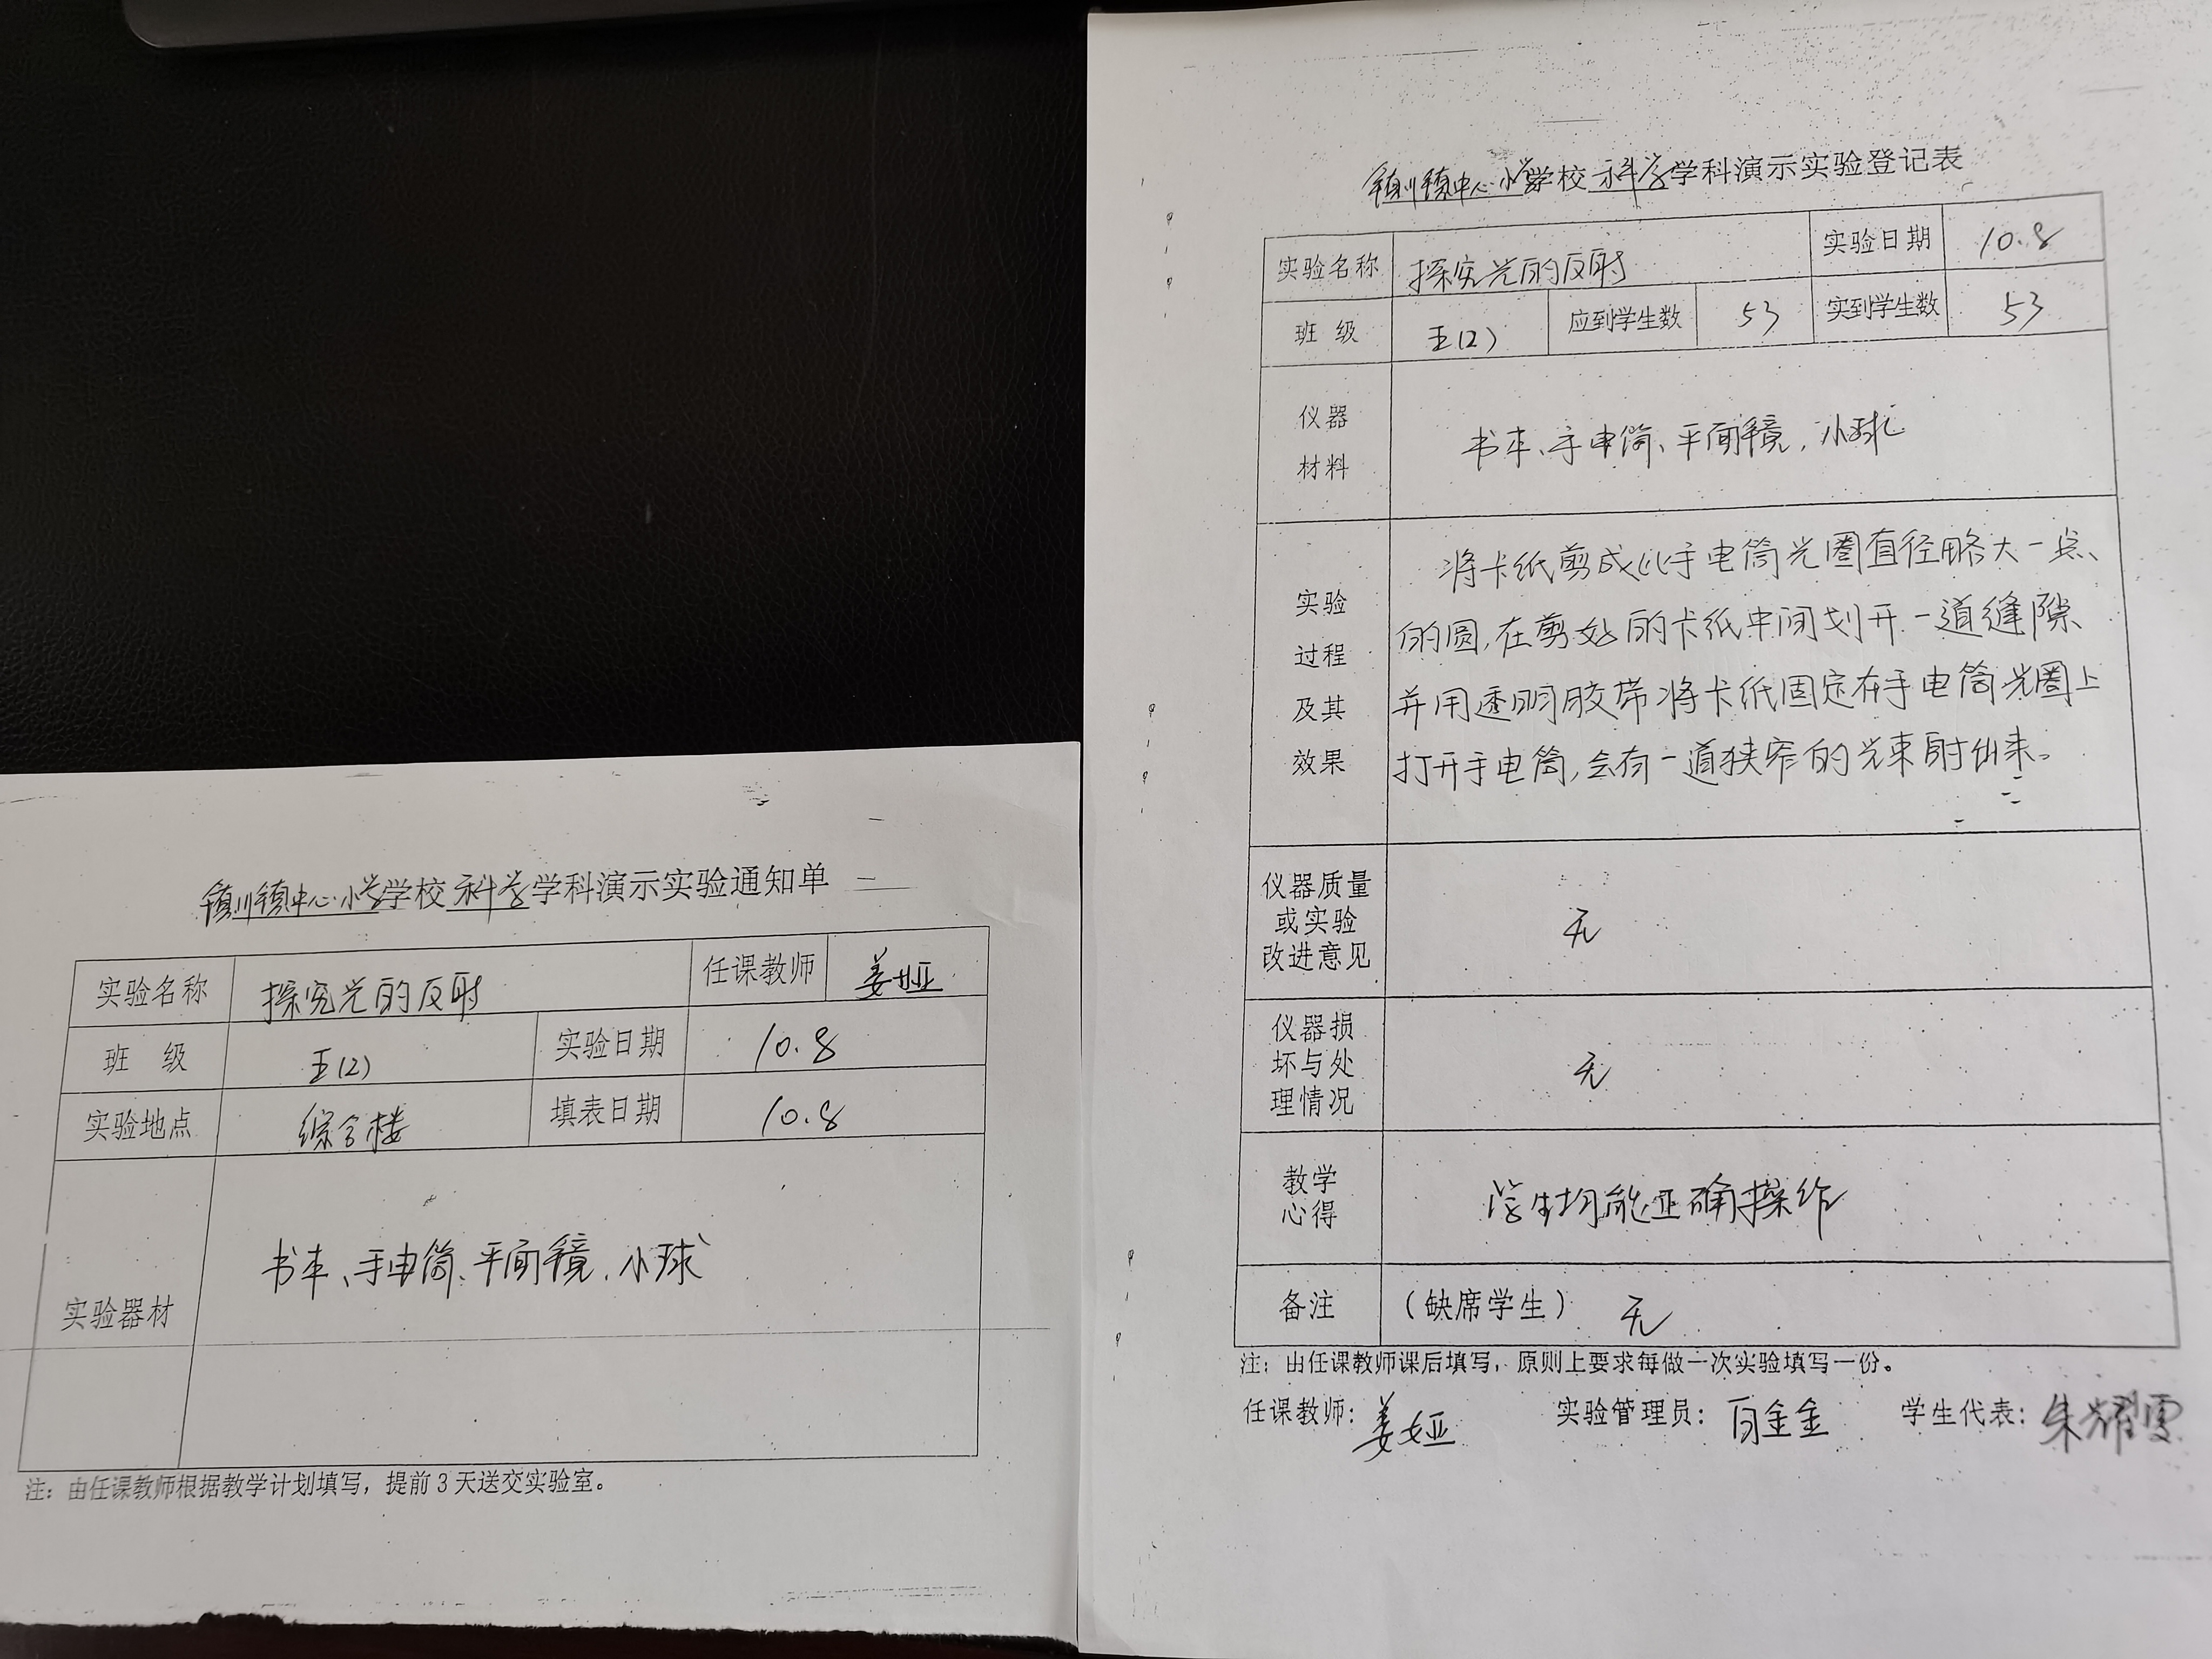 镇川镇中心小学学校科学学科演示实验通知单
实验名称 探究光的反射 任课教师 姜娅
班 级 五(2) 实验日期 10.8
实验地点 综合楼 填表日期 10.8
实验器材 书本、手电筒、平面镜、小球
注：由任课教师根据教学计划填写，提前3天送交实验室。
镇川镇中心小学学校科学学科演示实验登记表
实验名称 探究光的反射 实验日期 10.8
班 级 五(2) 应到学生数 53 实到学生数 53
仪器
材料
书本、手电筒、平面镜、小球
实验
过程
及其
效果
将卡纸剪成比手电筒光圈直径略大一点、
的圆,在剪好的卡纸中间划开一道缝隙
并用透明胶带将卡纸固定在手电筒光圈上
打开手电筒,会有一道狭窄的光束射出来。
仪器质量
或实验
改进意见
无
仪器损
坏与处
理情况
无
教学
心得
学生均能正确操作
备注 （缺席学生） 无
注：由任课教师课后填写，原则上要求每做一次实验填写一份。
任课教师：姜娅 实验管理员：白金金 学生代表：朱耀雯